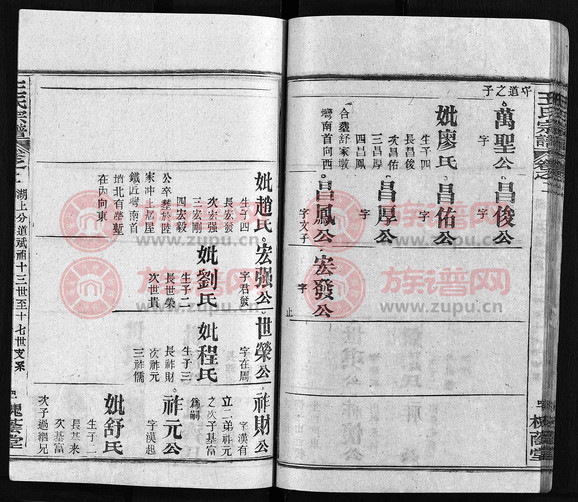 王氏宗譜
道之子
萬聖公
字
妣廖氏
生子四
長昌俊
次昌佑
三昌厚
四昌鳳
合塟舒家墩
灣南首向西
昌俊公
字
昌佑公
字
昌厚公
字
昌鳳公
字文子
宏發公
字
止
妣趙氏
生子四
長宏發
次宏强
三宏剛
四宏毅
公卒塟於陸
家冲上屋
灣南首
在內向東
宏强公
字君發
妣劉氏
生子二
長世榮
次世貴
世榮公
字在周
妣程氏
生子三
長祚財
次祚元
三祚儒
祚財公
字漢有
立二弟祚元
之次子基富
爲嗣
祚元公
字漢起
妣舒氏
生子二
長基来
次基富
次子過繼兄
王氏宗譜
湖上分道斌祚十三世至十七世支系
族谱网
www.zupu.cn
族谱网
www.zupu.cn
族谱网
www.zupu.cn
族谱网
www.zupu.cn